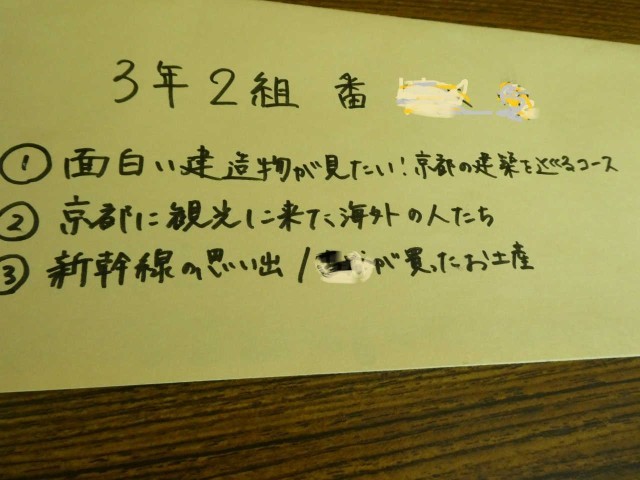 3年2組 番
① 面白い建造物が見たい!京都の建築を巡るコース
② 京都に観光しに来た海外の人たち
③ 新幹線の思い出/が買ったお土産